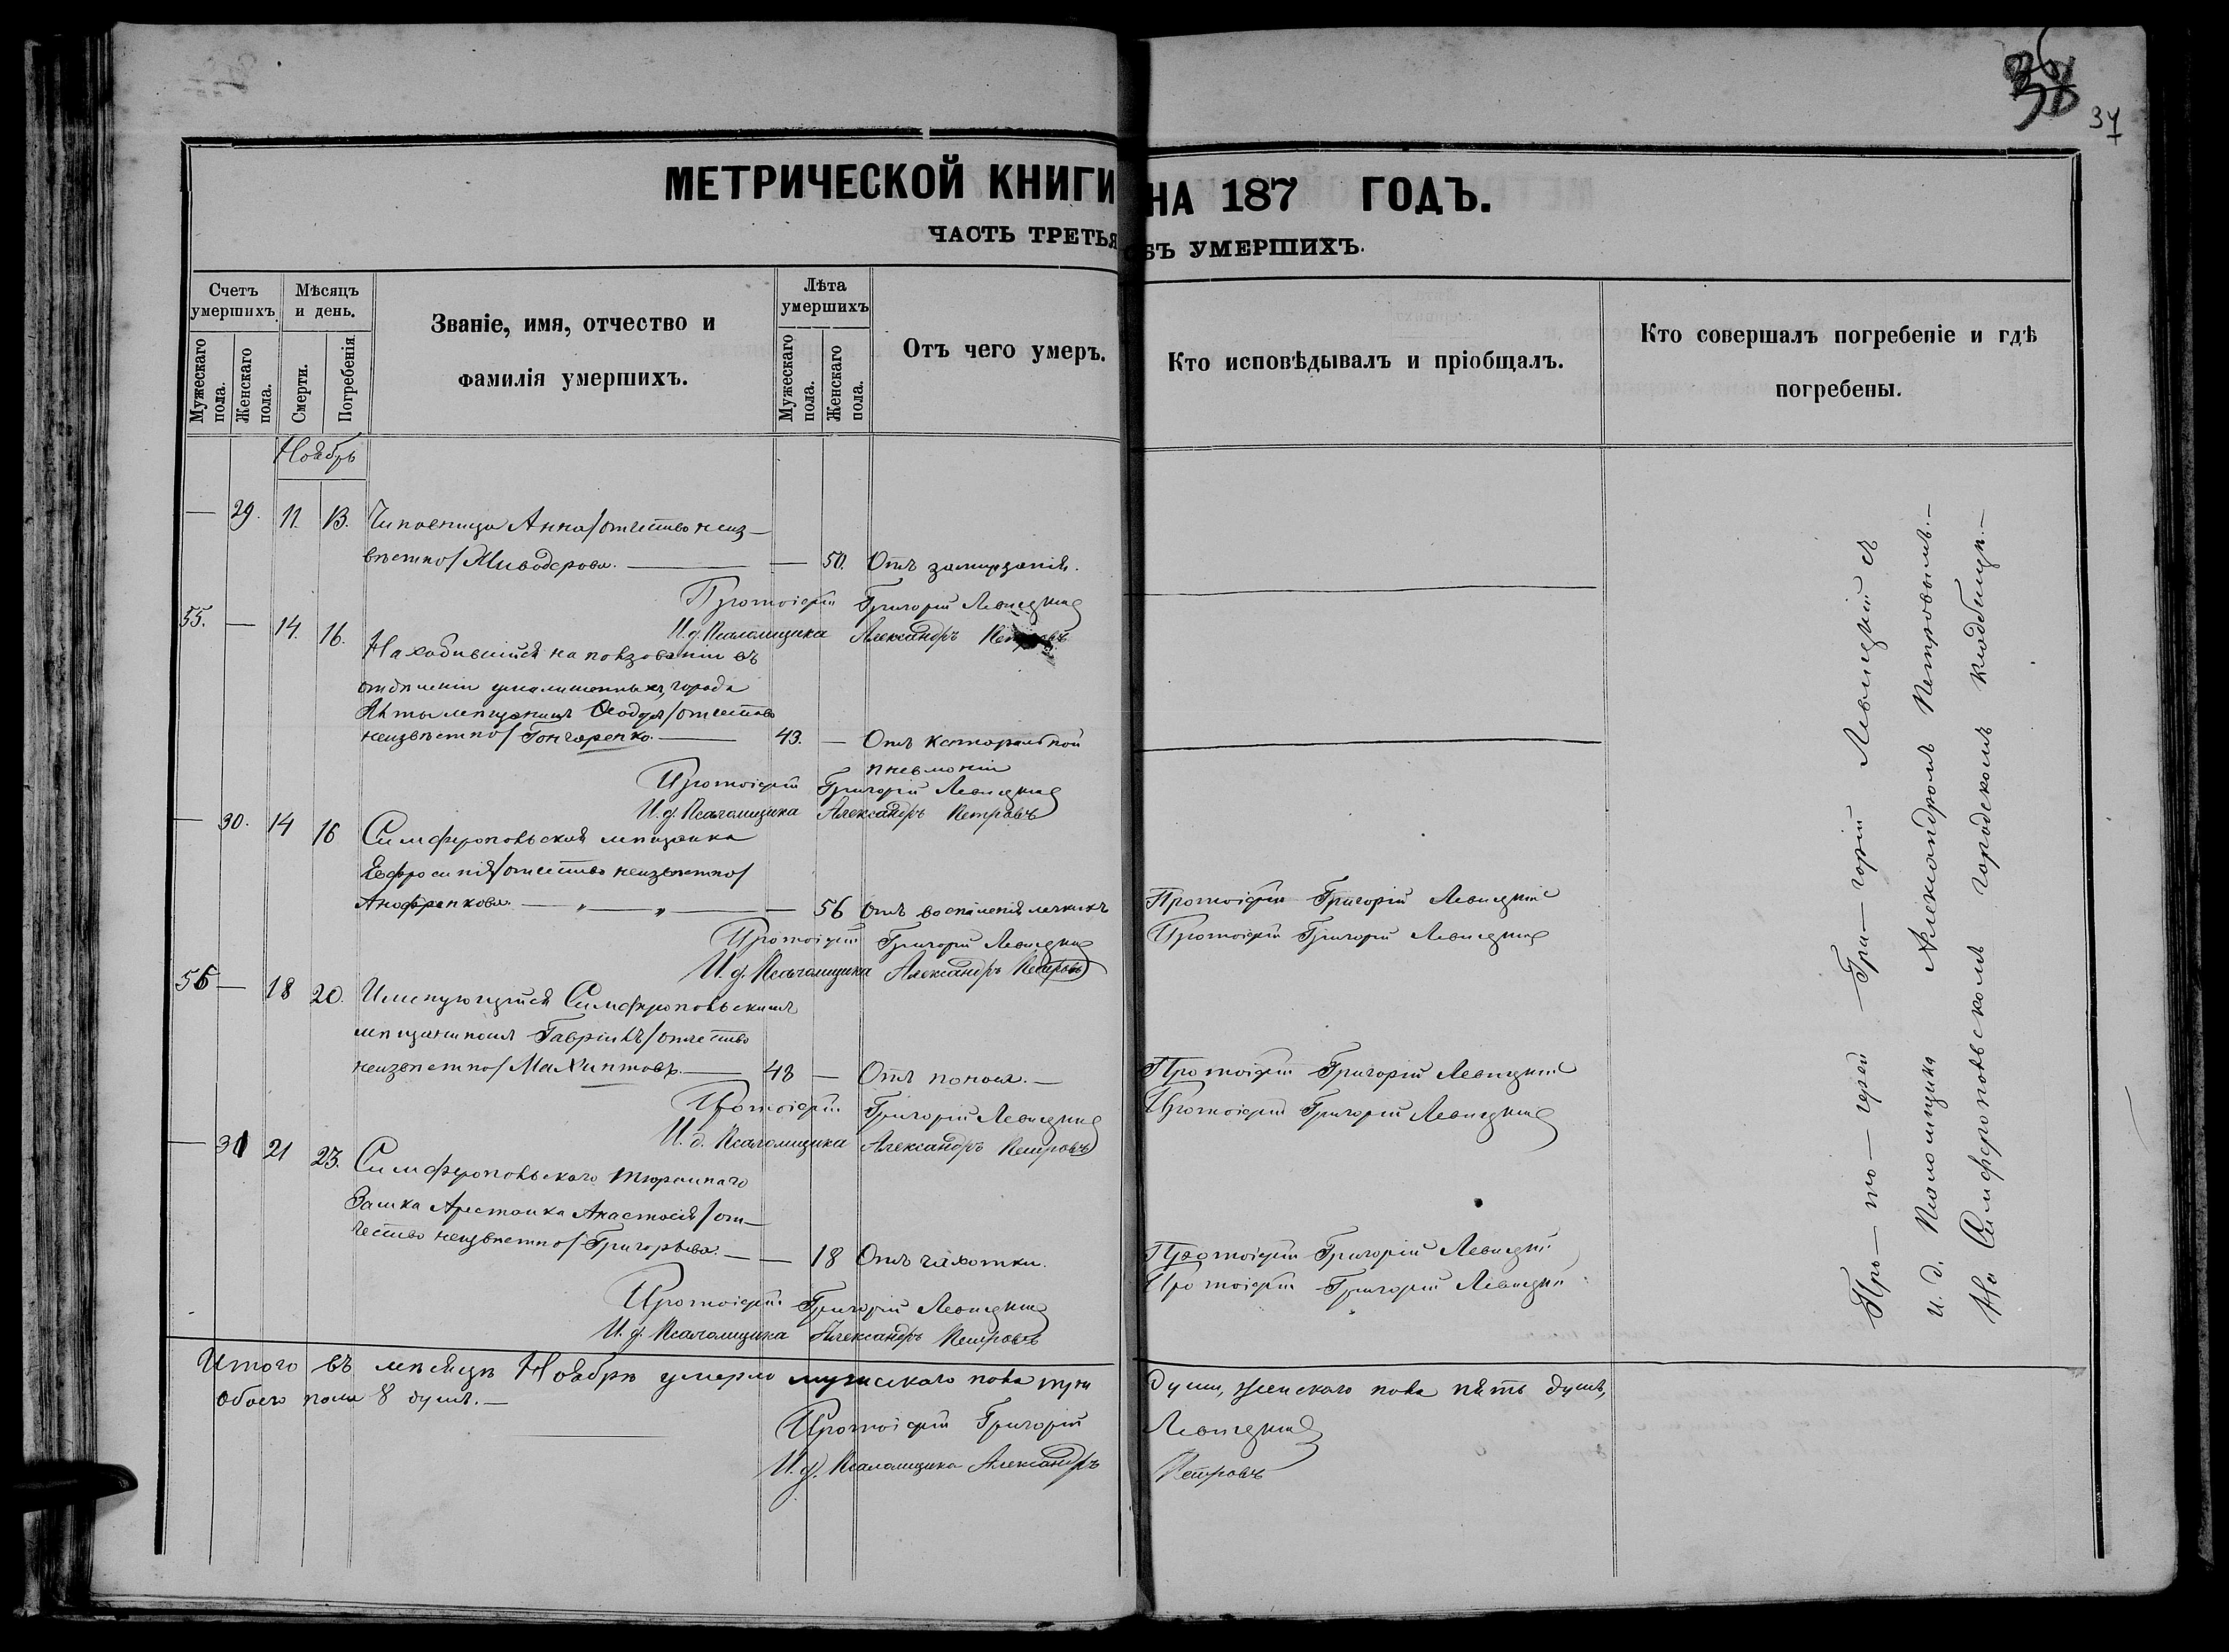 36
37
МЕТРИЧЕСКОЙ КНИГИ НА 187 ГОДЪ.
ЧАСТЬ ТРЕТЬЯ ОБЪ УМЕРШИХЪ.
Счетъ умершихъ.
Мужескаго пола.
Женскаго пола.
Мѣсяцъ и день.
Смерти.
Погребенія
Званіе, имя, отчество и
фамилія умершихъ.
Лѣта умершихъ
Мужескаго пола.
Женскаго пола.
Отъ чего умеръ.
Кто исповѣдывалъ и пріобщалъ.
Кто совершалъ погребеніе и гдѣ
погребены.
Ноябрь
— 29. 11. 13. Чиновница Анна /отчество неиз-
вѣстно/ — 50. Отъ
Протоіерей Григорій Левицкій
И. д. Псаломщика Александръ Петровъ
55. — 14. 16. Находившійся на пользованіи въ
отдѣленіи умалишенныхъ, города
Ялты мещанинъ Ѳеодоръ /отчество
неизвѣстно/ Гончаренко. — 43. — Отъ катаральной
пневмоніи
Протоіерей Григорій Левицкій
И. д. Псаломщика Александръ Петровъ
— 30. 14 16 Симферопольская мѣщанка
Евфросинія /отчество неизвѣстно/
— „ — „ — 56 Отъ воспаленія легкихъ Протоіерей Григорій Левицкій
Протоіерей Григорій Левицкій Протоіерей Григорій Левицкій
И. д. Псаломщика Александръ Петровъ
56 — 18 20. Именующійся Симферопольскимъ
мѣщаниномъ Гавріилъ /отчество
неизвѣстно/ — 48 — Отъ поноса. — Протоіерей Григорій Левицкій
Протоіерей Григорій Левицкій Протоіерей Григорій Левицкій
И. д. Псаломщика Александръ Петровъ
— 31 21 23. Симферопольскаго тюремнаго
Замка Арестанка Анастасія /от-
чество неизвѣстно/ Григорьева. — — 18 Отъ чахотки. Протоіерей Григорій Левицкій
Протоіерей Григорій Левицкій Протоіерей Григорій Левицкій
И. д. Псаломщика Александръ Петровъ
Про — то — іерей — Гри — горій Левицкій съ
и. д. Псаломщика Александромъ Петровымъ. —
На Симферопольскомъ городскомъ кладбищѣ. —
Итого въ мѣсяцѣ Ноябрѣ умерло мужескаго пола три души, женскаго пола пять душъ,
обоего пола 8 душъ. —
Протоіерей Григорій Левицкій
И. д. Псаломщика Александръ Петровъ